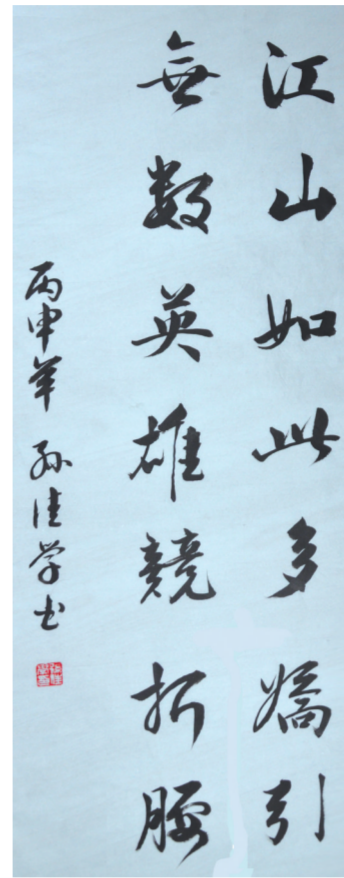 江山如此多嬌引
無数英雄競折腰
丙申年 孙佳学书